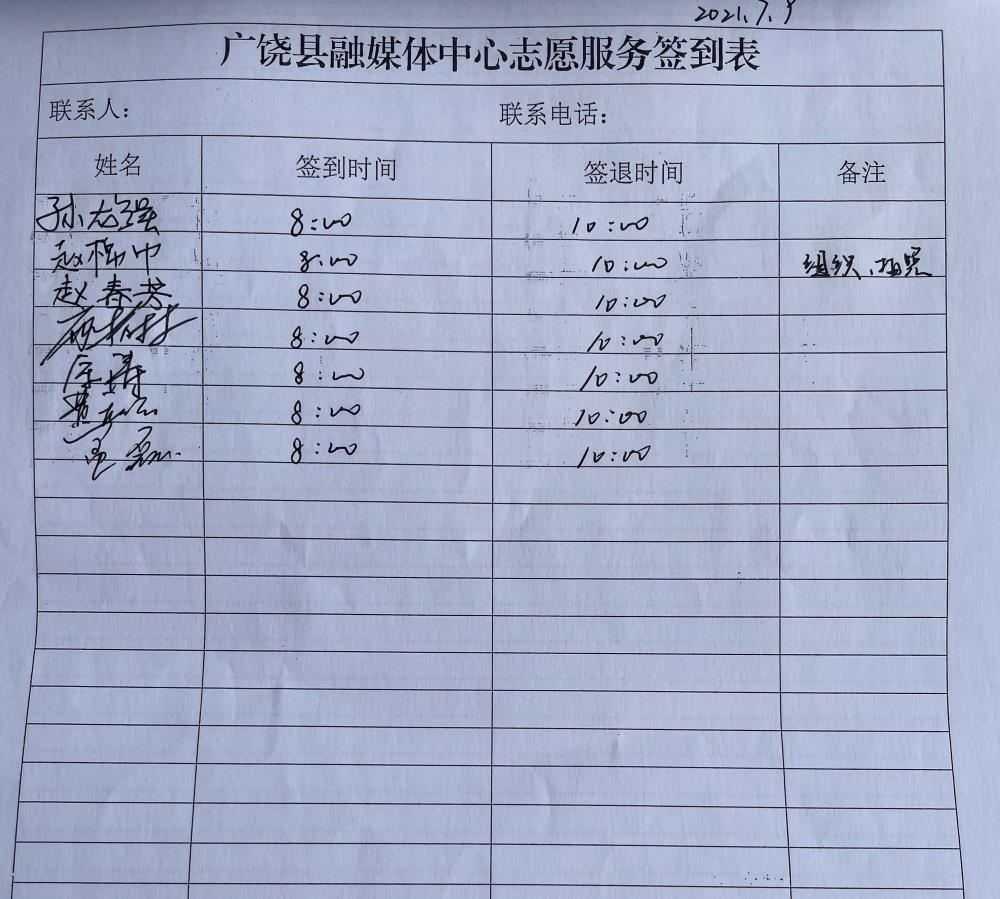 2021.7.9
广饶县融媒体中心志愿服务签到表
联系人： 联系电话：
姓名 签到时间 签退时间 备注
孙龙强 8:00 10:00
赵 8:00 10:00 组织、拍照
赵春芳 8:00 10:00
8:00 10:00
8:00 10:00
8:00 10:00
磊 8:00 10:00